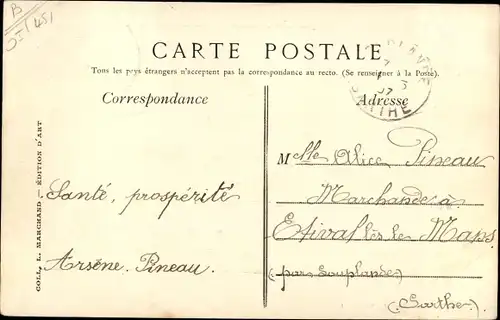 CARTE POSTALE
Tous les pays étrangers n'acceptent pas la correspondance au recto. (Se renseigner à la Poste).
Correspondance
Adresse
Mlle Alice Pineau
Marchande à
Etival lès le Mans
(par Souplande)
(Sarthe)
Santé, prospérité
Arsène Pineau.
COLL. L. MARCHAND, — ÉDITION D'ART